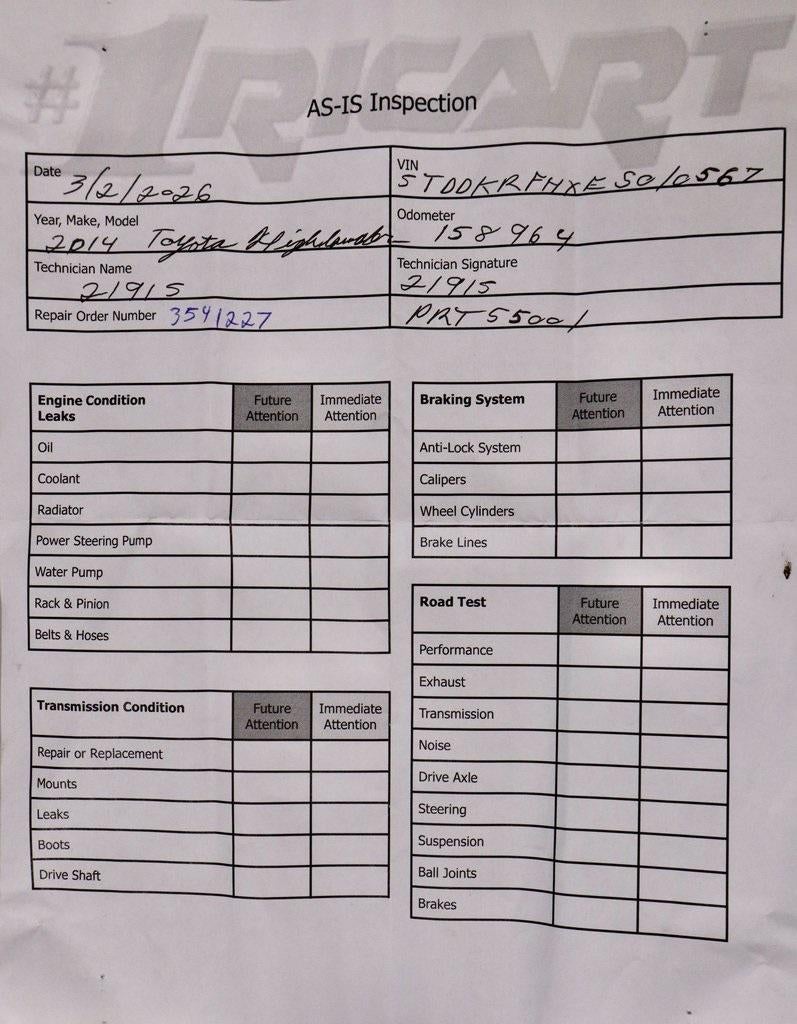 #1RICART
AS-IS Inspection
Date 3/2/2026
VIN 5TDDKRFHXES010567
Year, Make, Model 2014 Toyota Highlander
Odometer 158964
Technician Name 21915
Technician Signature 21915
Repair Order Number 3541227
PRT55001
Engine Condition Leaks Future Attention Immediate Attention
Oil
Coolant
Radiator
Power Steering Pump
Water Pump
Rack & Pinion
Belts & Hoses
Transmission Condition Future Attention Immediate Attention
Repair or Replacement
Mounts
Leaks
Boots
Drive Shaft
Braking System Future Attention Immediate Attention
Anti-Lock System
Calipers
Wheel Cylinders
Brake Lines
Road Test Future Attention Immediate Attention
Performance
Exhaust
Transmission
Noise
Drive Axle
Steering
Suspension
Ball Joints
Brakes